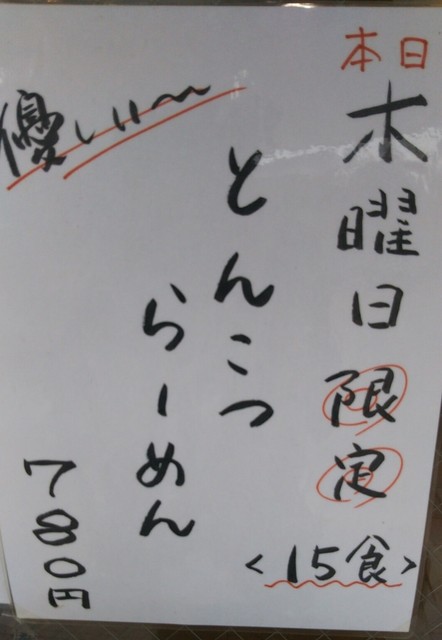 本日
木曜日限定
<15食>
とんこつ
らーめん
優しい〜
780円